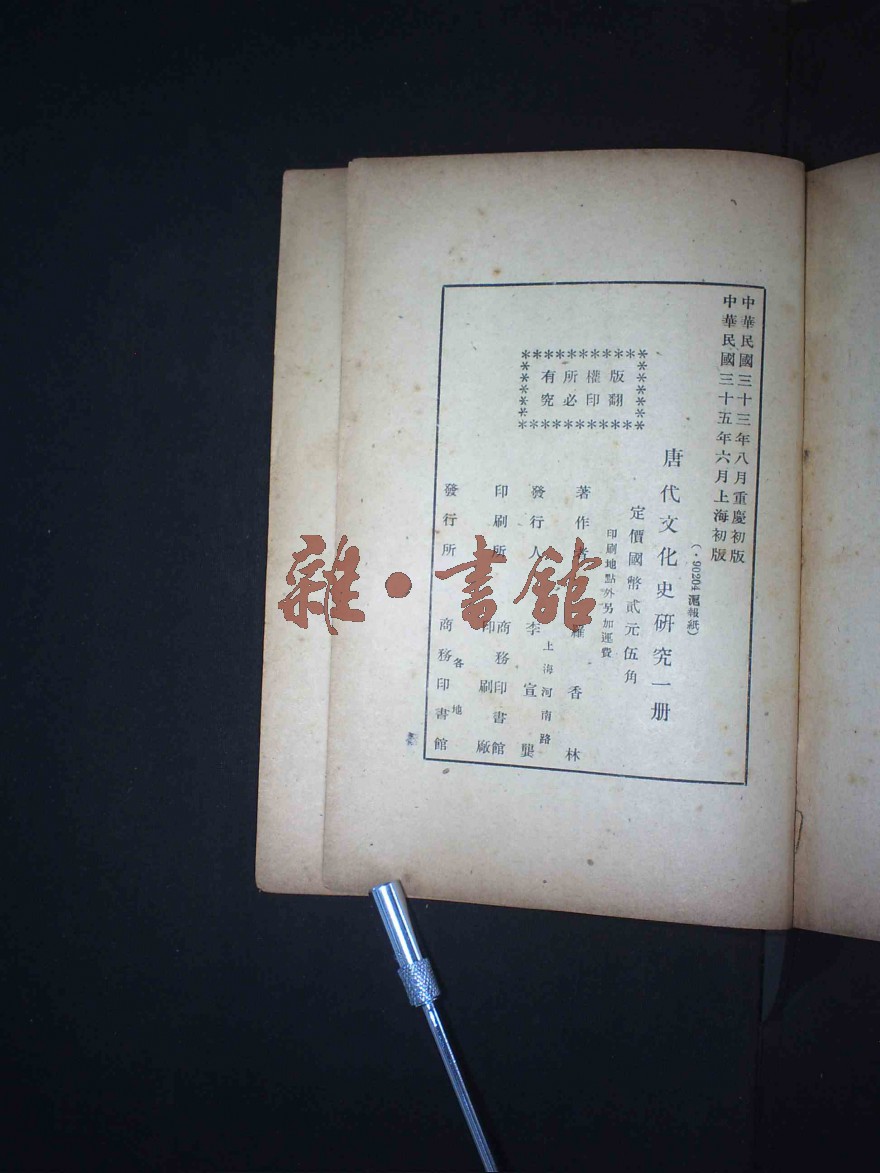 中華民國三十三年八月重慶初版
中華民國三十五年六月上海初版
(·90204滬報紙)
唐代文化史研究一册
定價國幣貳元伍角
印刷地點外另加運費
版權所有
翻印必究
著作者 羅香林
上海河南路
發行人 李宣龔
印刷所 商務印書館印刷廠
各地
發行所 商務印書館
雜·書館